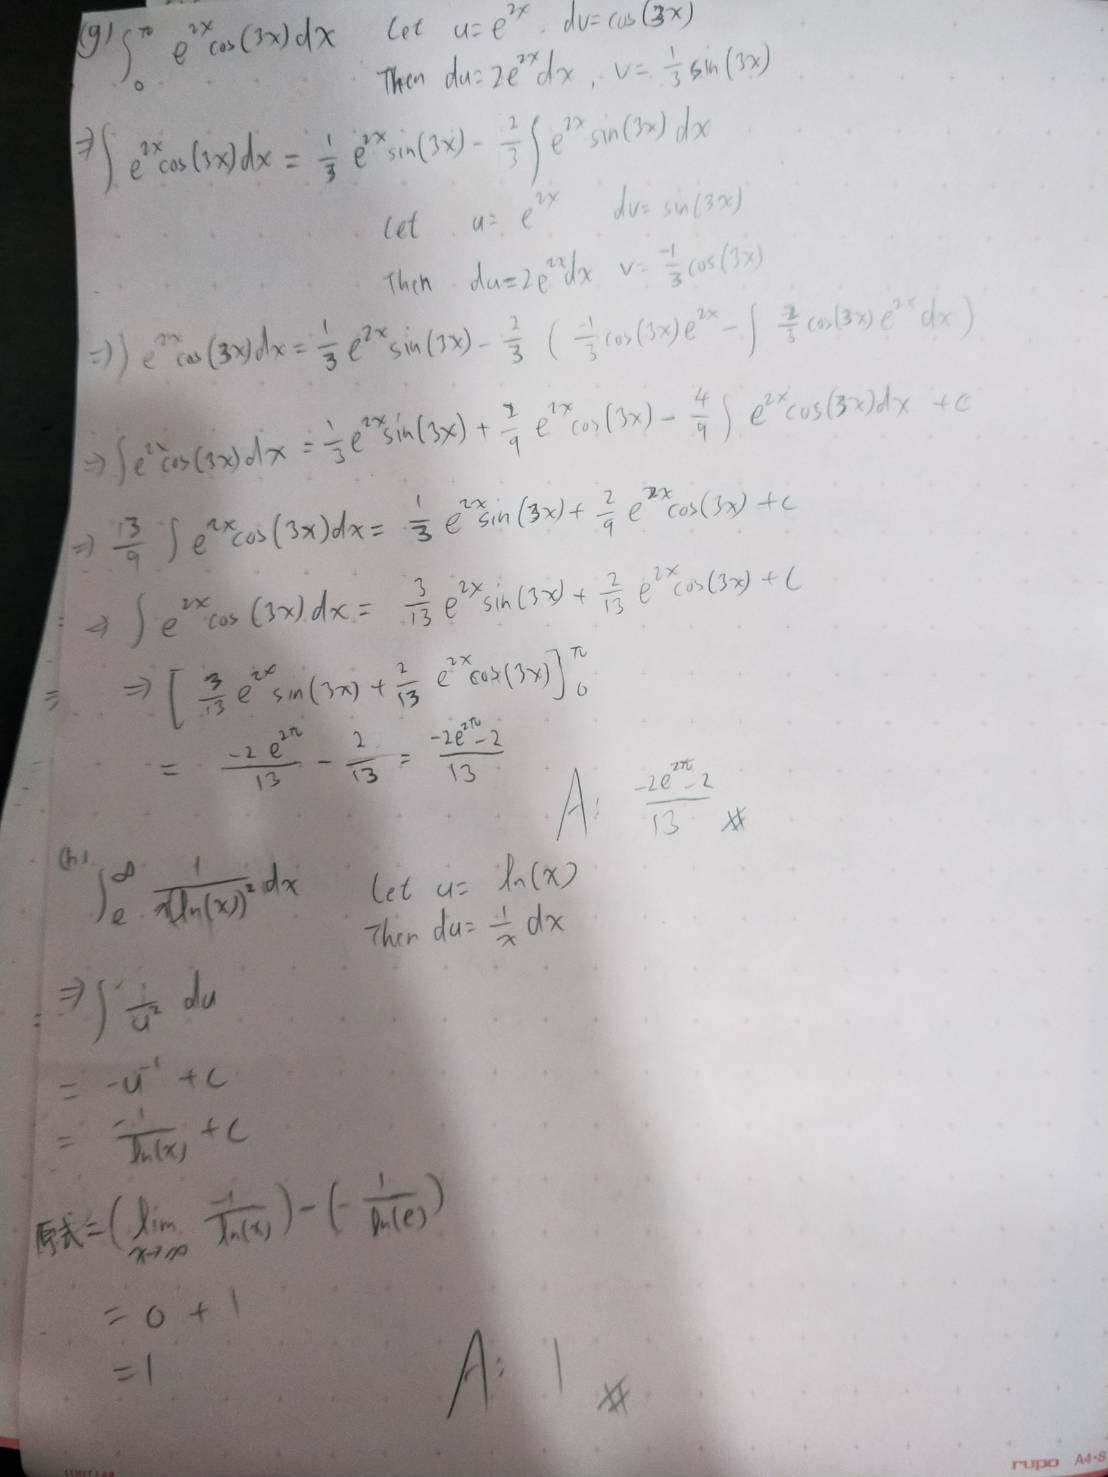 (g) ∫₀^π e^{2x} cos(3x) dx Let u = e^{2x} dv = cos(3x)
Then du = 2e^{2x} dx, v = 1/3 sin(3x)
⇒ ∫ e^{2x} cos(3x) dx = 1/3 e^{2x} sin(3x) - 2/3 ∫ e^{2x} sin(3x) dx
Let u = e^{2x} dv = sin(3x)
Then du = 2e^{2x} dx v = -1/3 cos(3x)
⇒ ∫ e^{2x} cos(3x) dx = 1/3 e^{2x} sin(3x) - 2/3 ( -1/3 cos(3x) e^{2x} - ∫ -2/3 cos(3x) e^{2x} dx )
⇒ ∫ e^{2x} cos(3x) dx = 1/3 e^{2x} sin(3x) + 2/9 e^{2x} cos(3x) - 4/9 ∫ e^{2x} cos(3x) dx + c
⇒ 13/9 ∫ e^{2x} cos(3x) dx = 1/3 e^{2x} sin(3x) + 2/9 e^{2x} cos(3x) + c
⇒ ∫ e^{2x} cos(3x) dx = 3/13 e^{2x} sin(3x) + 2/13 e^{2x} cos(3x) + C
⇒ [ 3/13 e^{2x} sin(3x) + 2/13 e^{2x} cos(3x) ]₀^π
= -2e^{2π}/13 - 2/13 = (-2e^{2π} - 2)/13
A: (-2e^{2π} - 2)/13 #
(h) ∫_e^∞ 1/(x(ln(x))²) dx Let u = ln(x)
Then du = 1/x dx
⇒ ∫ 1/u² du
= -u^{-1} + C
= -1/ln(x) + C
原式 = (lim_{x→∞} -1/ln(x)) - (- 1/ln(e))
= 0 + 1
= 1
A: 1 #
rupo A4-S